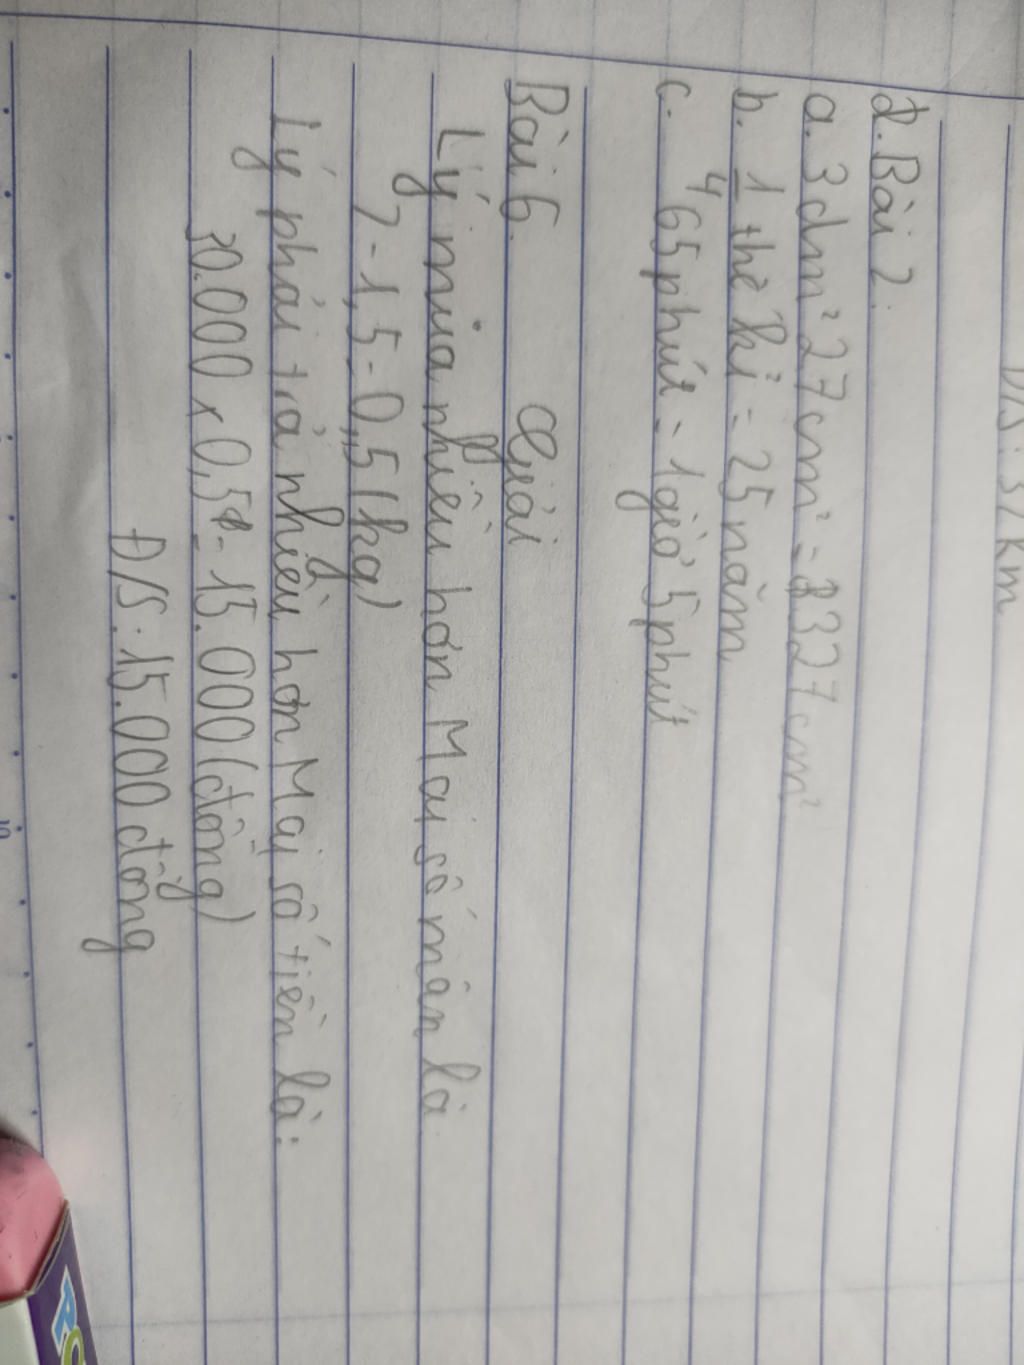 Đ/S: 37 km
2. Bài 2.
a. 3dm² 27cm² = 327cm²
b. 1/4 thế kỉ = 25 năm
c. 65 phút = 1 giờ 5 phút
Bài 6. Giải
Lý mua nhiều hơn Mai số mận là
2 - 1,5 = 0,5 (kg)
Lý phải trả nhiều hơn Mai số tiền là:
30.000 x 0,5 = 15.000 (đồng)
Đ/S: 15.000 đồng
10